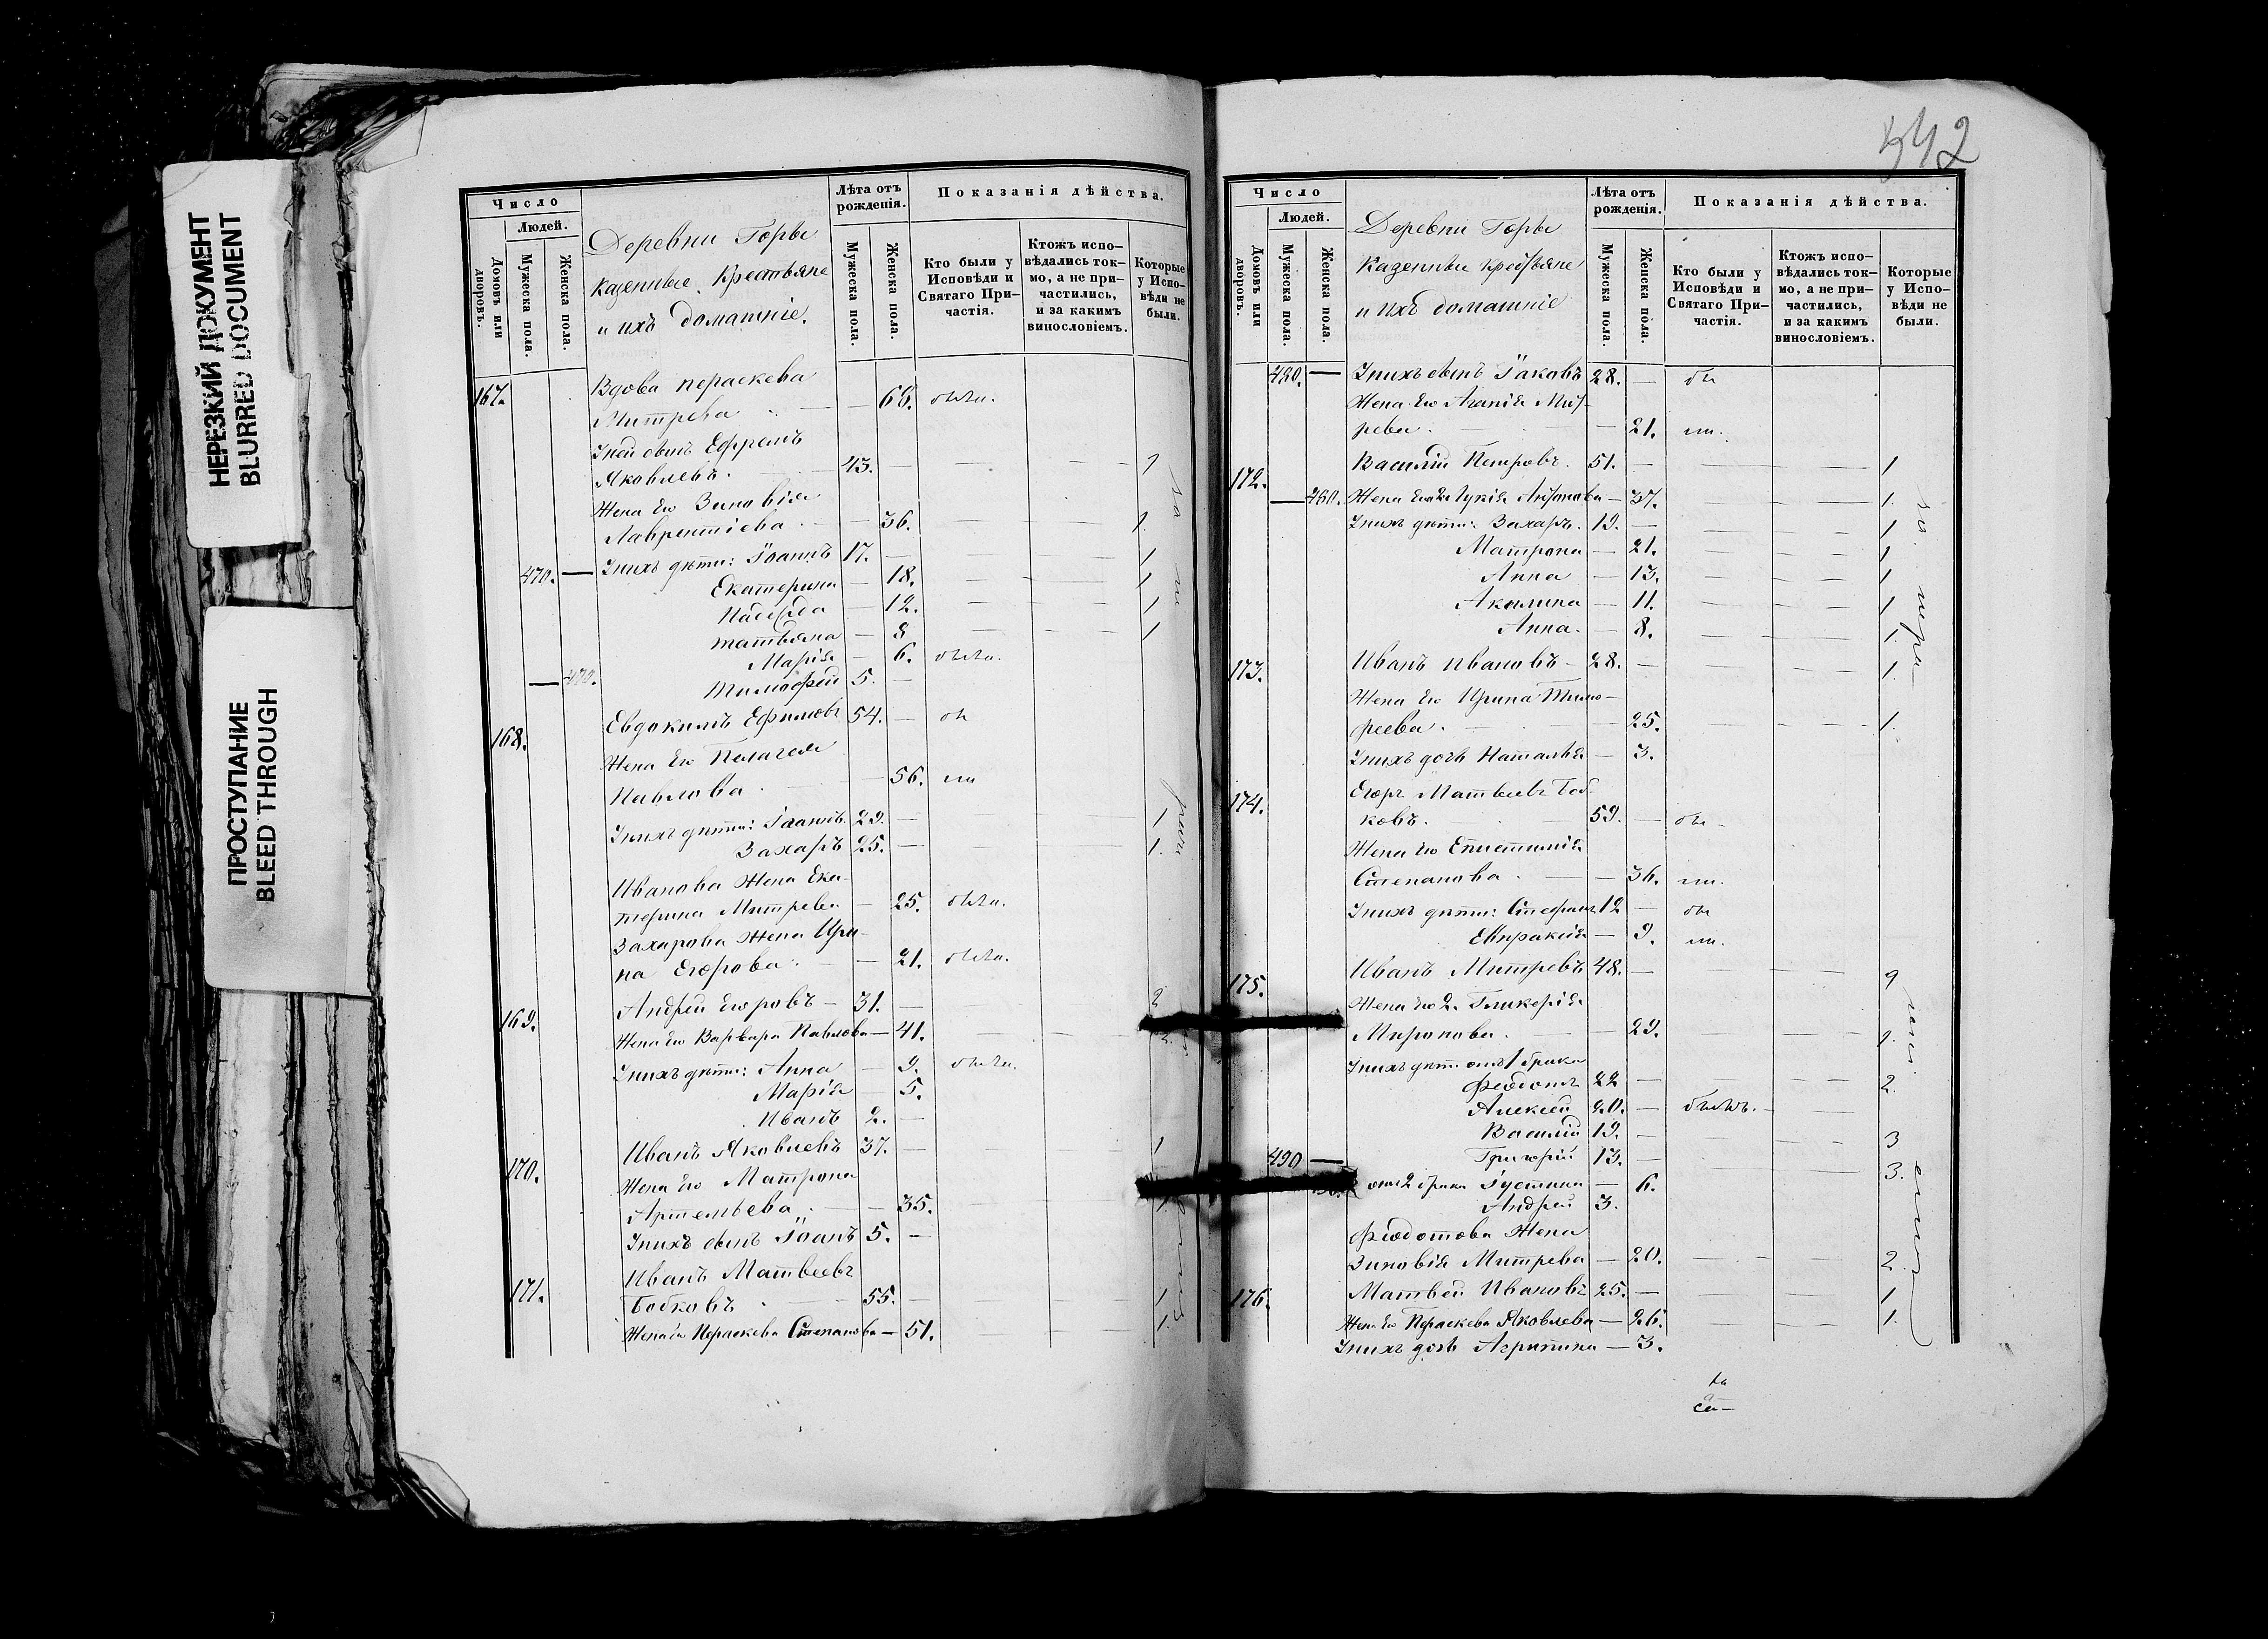 НЕРЕЗКИЙ ДОКУМЕНТ
BLURRED DOCUMENT
ПРОСТУПАНИЕ
BLEED THROUGH
Число
Людей.
Домовъ или дворовъ.
Мужеска пола.
Женска пола.
Деревни Горы
казенные Крестьяне
и ихъ домашніе.
Лѣта отъ рожденія.
Мужеска пола.
Женска пола.
Показанія дѣйства.
Кто были у Исповѣди и Святаго При-частія.
Ктожъ испо-вѣдались ток-мо, а не при-частились, и за какимъ винословіемъ.
Которые у Испо-вѣди не были.
167. Вдова пераскева
Митрева — 68. была.
Уней сынъ Ефремъ
Яковлевъ. 43. — — — 1
Жена Его Зиновія
Лаврентіева — 36. — — 1.
470. — Унихъ дѣти: Іоаннъ 17. — — — 1
Екатерина — 18. — — 1
— 12. — — 1
татьяна — 8 — — 1
Марія — 6. была.
— 472. Тимофей 5. —
168. Евдокимъ Ефимовъ 54. — бы
Жена Его Пелагея
Павлова — 56. ли
Унихъ дѣти: Іоаннъ 29. — — — 1
Захаръ 25. — — — 1.
Иванова Жена Ека-
терина Митрева — 25. была.
Захарова Жена Ири-
на Егорова — 21. была.
169. Андрей Егоровъ — 31. — 2
Жена Его Варвара Павлова — 41. — —
Унихъ дѣти: Анна — 9. была.
Марія 5.
Иванъ 2. —
170. Иванъ Яковлевъ 37. — — — 1
Жена Его Матрона
Артемьева — 35. — — 1.
Унихъ сынъ Іоанъ 5. —
171. Иванъ Матвеевъ
Бобковъ 55. — — — 1.
Жена Его Пераскева Степанова — 51. — — 1.
542
Число
Людей.
Домовъ или дворовъ.
Мужеска пола.
Женска пола.
Деревни Горы
Казенные Крестьяне
и ихъ домашніе
Лѣта отъ рожденія.
Мужеска пола.
Женска пола.
Показанія дѣйства.
Кто были у Исповѣди и Святаго При-частія.
Ктожъ испо-вѣдались ток-мо, а не при-частились, и за какимъ винословіемъ.
Которые у Испо-вѣди не были.
480. — Унихъ сынъ Іаковъ 28. — бы
Жена Его Агапія Мит-
рева. — 21. ли.
172. Василій Петровъ. 51. — — — 1
— 480. Жена Его 2я Лукія Антонова — 37. — — 1.
Унихъ дѣти: Захаръ. 19. — — — 1
Матрона — 21. — — 1
Анна — 13. — — 1
Акилина — 11. — — 1
Анна. — 8. — — 1.
173. Иванъ Ивановъ — 28. — — — 1.
Жена Его Ирина Тимо-
феева. — 25. — — 1.
Унихъ дочь Наталья — 3.
174. Егоръ Матвеевъ Боб-
ковъ. 59. — бы-
Жена Его Епистимія
Степанова — 36. ли.
Унихъ дѣти: Стефанъ 12 — бы
Евпраксія — 9. ли.
175. Иванъ Митревъ 48. — — —
Жена Его 2я Гликерія
Миронова. — 29. — —
Унихъ дѣти отъ 1 брака
Феодотъ 22 — — — 2.
Алексей 20. — былъ. —
Василій 19. — — — 3
490 — Григорій 13. — — — 3.
отъ 2 брака Іустина — 6.
Андрей 3.
Феодотова Жена
Зиновія Митрева — 20. — — 2.
176. Матвей Ивановъ 25. — — — 1
Жена Его Пераскева Яковлева — 26. — — 1.
Унихъ дочь Агрипина — 3.